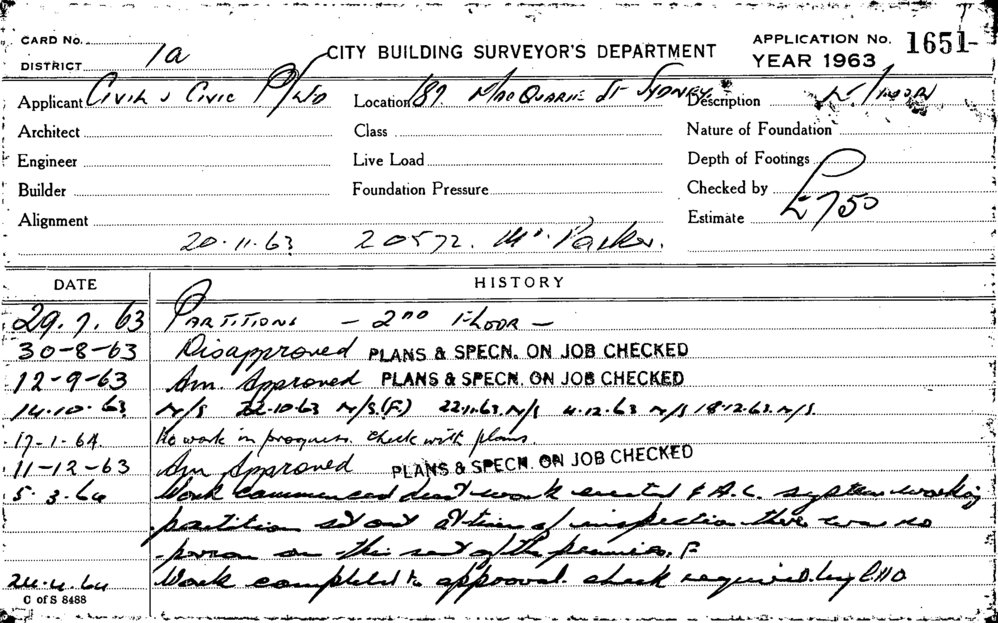 CARD No.
DISTRICT 1a
CITY BUILDING SURVEYOR'S DEPARTMENT
APPLICATION No. 1651-
YEAR 1963
Applicant Civil & Civic P/Ltd
Location 189 Macquarie St Sydney
Description
Architect
Class
Nature of Foundation
Engineer
Live Load
Depth of Footings
Builder
Foundation Pressure
Checked by
Alignment
Estimate £750
20.11.63 20572. Mr. Parker.
DATE
HISTORY
29.7.63 Partitions - 2nd Floor -
30-8-63 Disapproved PLANS & SPECN. ON JOB CHECKED
12-9-63 Am. Approved PLANS & SPECN. ON JOB CHECKED
14.10.63 N/S 22.10.63 N/S.(F.) 22.11.63. N/S 4.12.63 N/S 18.12.63. N/S.
17-1-64 No work in progress. Check with plans.
11-12-63 Am Approved PLANS & SPECN. ON JOB CHECKED
5.3.64 Work commenced duct work erected & A.C. system working
partition set out At time of inspection there was no
person on this of the premises. F
24.4.64 Work completed to approval. check required by
C of S 8488